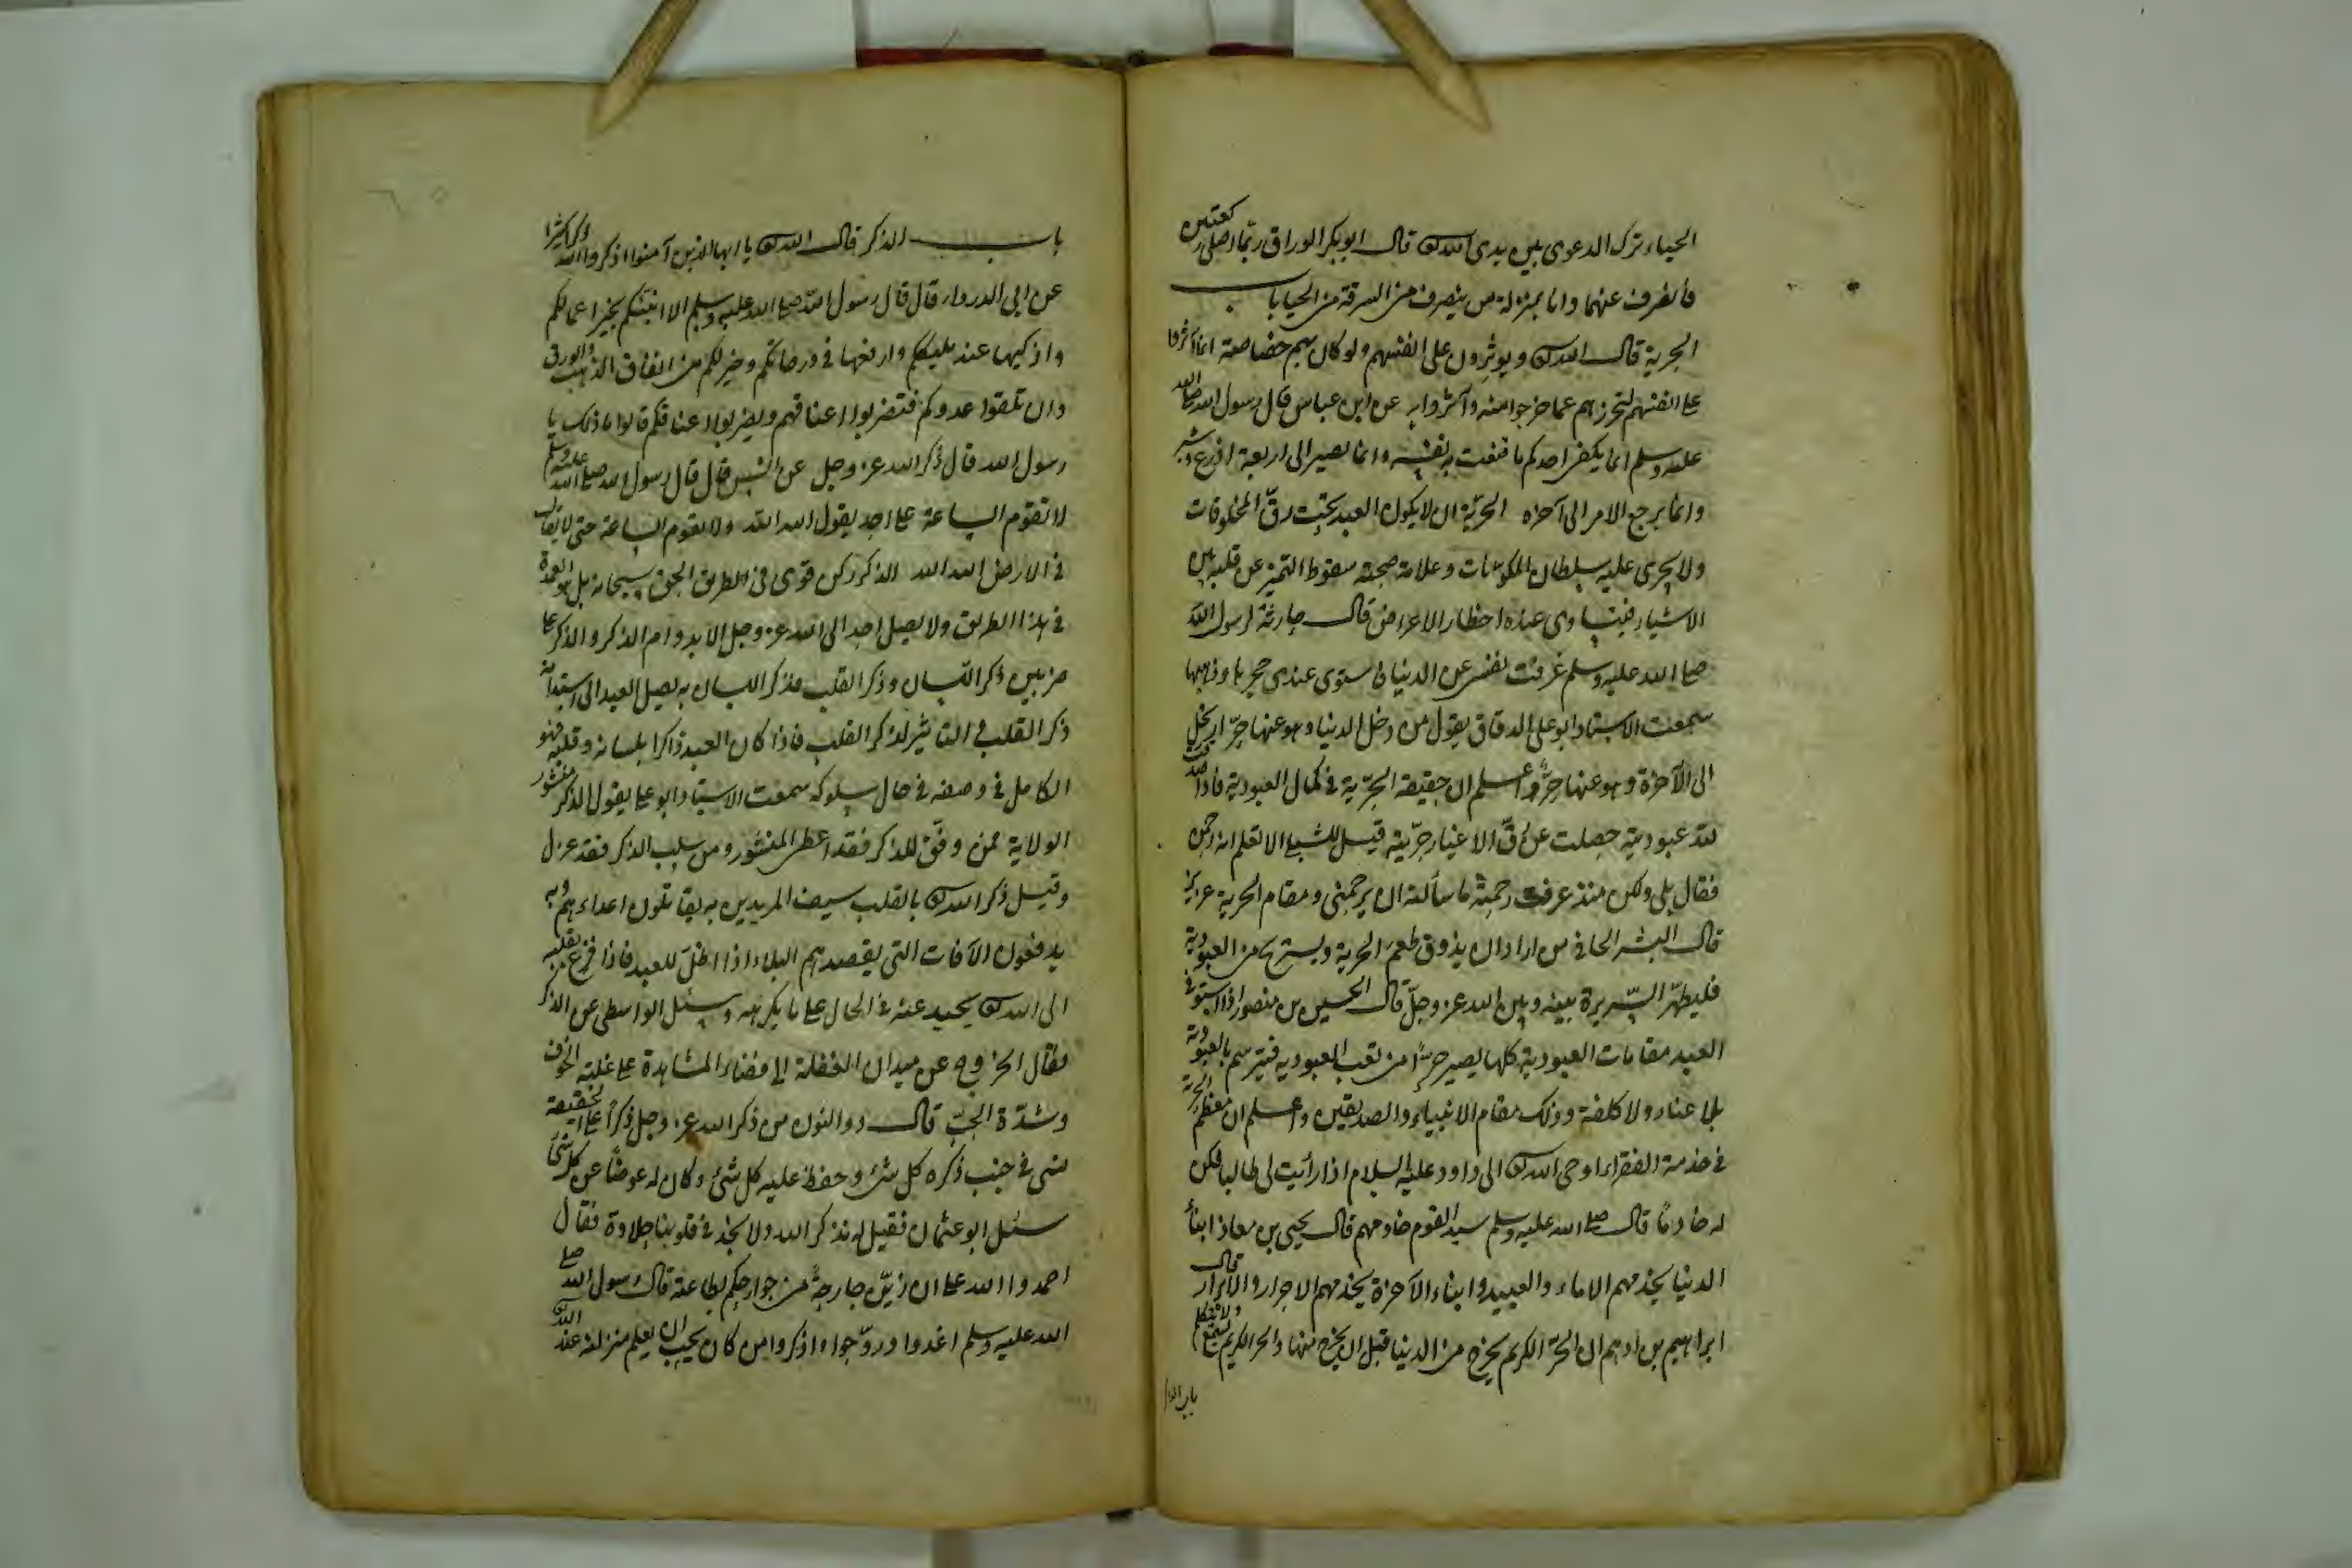 الحياء ترك الدعوى بين يدى الله تعالى قال ابو بكر الوراق ربما اصلى ركعتين
فانصرف عنهما وانا بمنزلة من ينصرف من السرقة من الحيا باب
الحرية قال الله تعالى ويوثرون على انفسهم ولو كان بهم خصاصة انما آثروا
على انفسهم لتحرزهم عما خرجوا منه وآثروا به عن ابن عباس قال رسول الله صلى الله
عليه وسلم انما يكفى احدكم ما قنعت به نفسه وانما يصير الى اربعة اذرع وشبر
وانما يرجع الامر الى آخره الحرّية ان لا يكون العبد تحت رقّ المخلوقات
ولا يجرى عليه سلطان المكونات وعلامة صحته سقوط التميز عن قلبه بين
الاشياء فيتساوى عنده اخطار الاعراض قال حارثة لرسول الله
صلى الله عليه وسلم عزفت نفسى عن الدنيا فاستوى عندى حجرها وذهبها
سمعت الاستاد ابو على الدقاق يقول من دخل الدنيا وهو عنها حرّ ارتحل
الى الآخرة وهو عنها حرٌّ واعلم ان حقيقة الحرّية فى كمال العبودية فاذا صدقت
لله عبوديته خلصت عن رقّ الاغيار حرّيته قيل للشبلى الا تعلم انه رحمن
فقال بلى ولكن منذ عرفت رحمته ما سألته ان يرحمنى ومقام الحرية عزيز
قال البشر الحافى من اراد ان يذوق طعم الحرية ويستريح من العبودية
فليطهّر السّريرة بينه وبين الله عز وجلّ قال الحسين بن منصور اذا استوفى
العبد مقامات العبودية كلها يصير حرًّا من تعب العبودية فيترسم بالعبودية
بلا عناء ولا كلفة وذلك مقام الانبياء والصديقين واعلم ان معظم الحرية
فى خدمة الفقراء اوحى الله تعالى الى داود عليه السلام اذا رأيت لى طالبا فكن
له خادمًا قال صلى الله عليه وسلم سيد القوم خادمهم قال يحيى بن معاذ ابناء
الدنيا يخدمهم الاماء والعبيد وابناء الآخرة يخدمهم الاحرار والابرار قال
ابراهيم بن ادهم ان الحرّ الكريم يخرج من الدنيا قبل ان يخرج منها والحر الكريم
باب
باب الذكر قال الله تعالى يا ايها الذين آمنوا اذكروا الله ذكرا كثيرا
عن ابى الدرداء قال قال رسول الله صلى الله عليه وسلم الا انبئكم بخير اعمالكم
وازكيها عند مليككم وارفعها فى درجاتكم وخير لكم من انفاق الذهب والورق
وان تلقوا عدوكم فتضربوا اعناقهم ويضربوا اعناقكم قالوا ما ذلك يا
رسول الله قال ذكر الله عز وجل عن انس قال قال رسول الله صلى الله عليه وسلم
لا تقوم الساعة على احد يقول الله الله ولا تقوم الساعة حتى لا يقال
فى الارض الله الله الذكر ركن قوى فى الطريق الحق سبحانه بل هو العمدة
فى هذا الطريق ولا يصل احد الى الله عز وجل الا بدوام الذكر والذكر على
ضربين ذكر اللسان وذكر القلب فذكر اللسان به يصل العبد الى استدامة
ذكر القلب فى التاثير لذكر القلب فاذا كان العبد ذاكرا بلسانه وقلبه فهو
الكامل فى وصفه فى حال سلوكه سمعت الاستاد ابو على يقول الذكر منشور
الولاية فمن وفّق للذكر فقد اعطى المنشور ومن سلب الذكر فقد عزل
وقيل ذكر الله تعالى بالقلب سيف المريدين به يقاتلون اعداءهم وبه
يدفعون الآفات التى يقصدهم البلاء اذا اظلّ للعبد فاذا فزع بقلبه
الى الله تعالى يحيد عنه فى الحال على ما يكرهه وسئل الواسطى عن الذكر
فقال الخروج عن ميدان الغفلة الى فضاء المشاهدة على غلبة الخوف
وشدّة الحبّ قال ذو النون من ذكر الله عز وجل ذكرًا على الحقيقة
نسى فى جنب ذكره كل شئ وحفظ عليه كل شئ وكان له عوضًا عن كل شئ
سئل ابو عثمان فقيل له نذكر الله ولا نجد فى قلوبنا حلاوة فقال
احمدوا الله على ان زيّن جارحةً من جوارحكم بطاعته قال رسول الله صلى
الله عليه وسلم اغدوا وروّحوا واذكروا من كان يحب ان يعلم منزلته عند الله